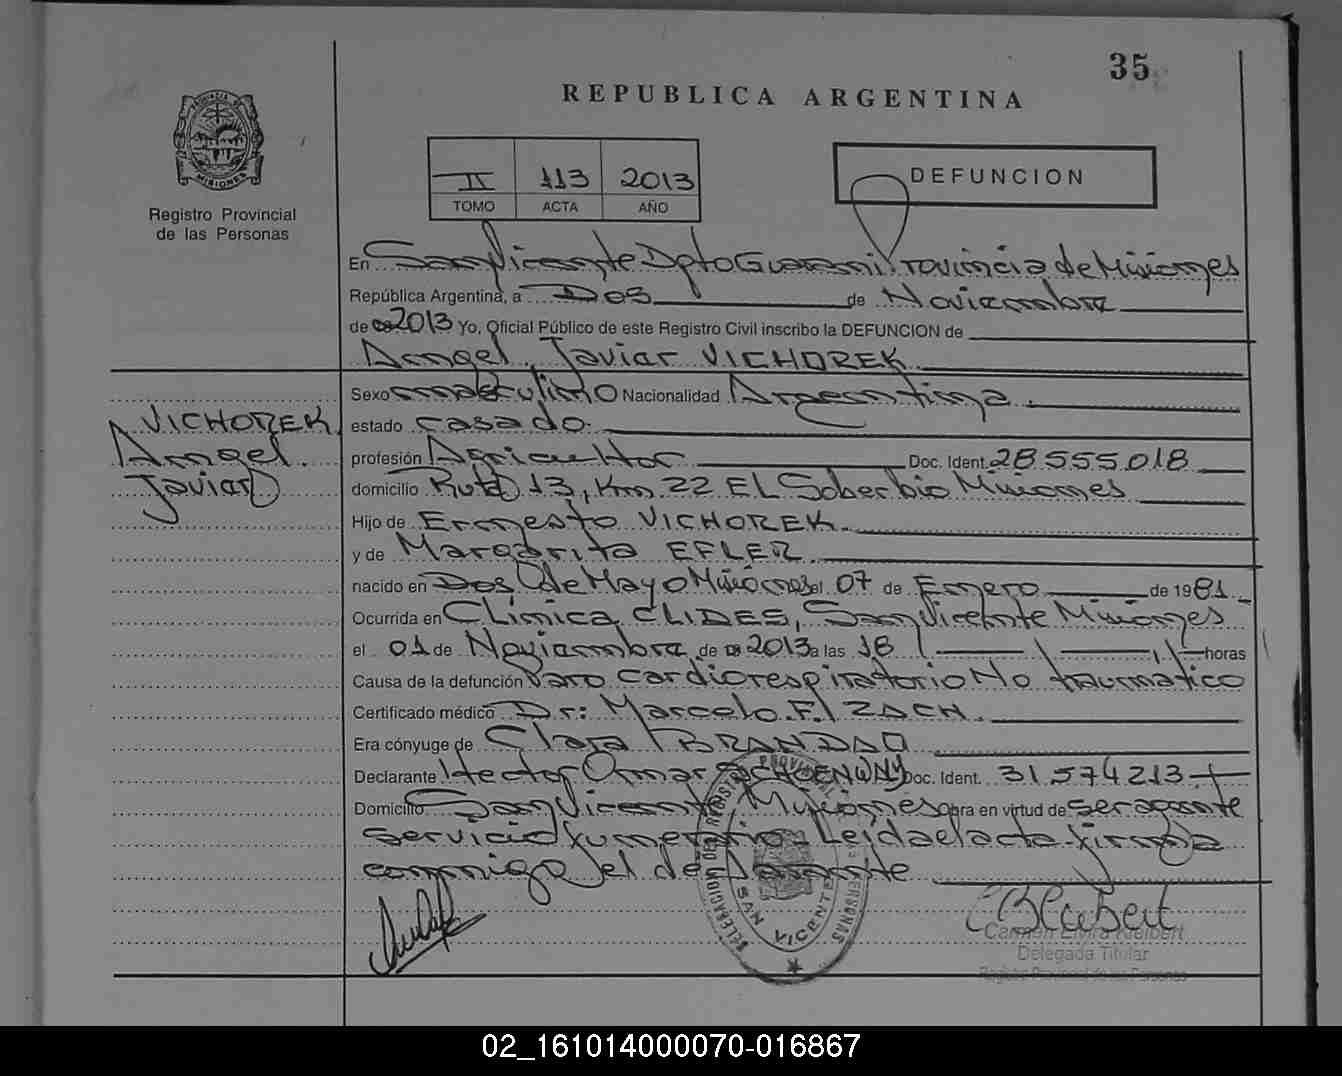 35
REPUBLICA ARGENTINA
PROVINCIA DE
MISIONES
Registro Provincial
de las Personas
II 113 2013
TOMO ACTA AÑO
DEFUNCION
En San Vicente Dpto Guarani Provincia de Misiones
República Argentina, a Dos de Noviembre
de 2013 Yo, Oficial Público de este Registro Civil inscribo la DEFUNCION de
Angel Javier VICHOREK
VICHOREK
Angel
Javier
Sexo masculino Nacionalidad Argentina
estado casado
profesión Agricultor Doc. Ident. 28.555.018
domicilio Ruta 13, Km 22 EL Soberbio Misiones
Hijo de Ernesto VICHOREK
y de Margarita EFLER
nacido en Dos de Mayo Misiones el 07 de Enero de 1981
Ocurrida en Clinica CLIDES, San Vicente Misiones
el 01 de Noviembre de 2013 a las 18 horas
Causa de la defunción Paro cardiorespiratorio No traumatico
Certificado médico Dr: Marcelo.F. ZACH
Era cónyuge de Clara BRANDAO
Declarante Hector Omar SCHOENWNY Doc. Ident. 31.574213
Domicilio San Vicente Misiones obra en virtud de ser agente
servicio funerario. Leida el acta firma
conmigo el declarante
DELEGACION DEL REGISTRO PROVINCIAL DE LAS PERSONAS
SAN VICENTE
Carmen Kleibert
Delegada Titular
Registro Provincial de las Personas
02_161014000070-016867